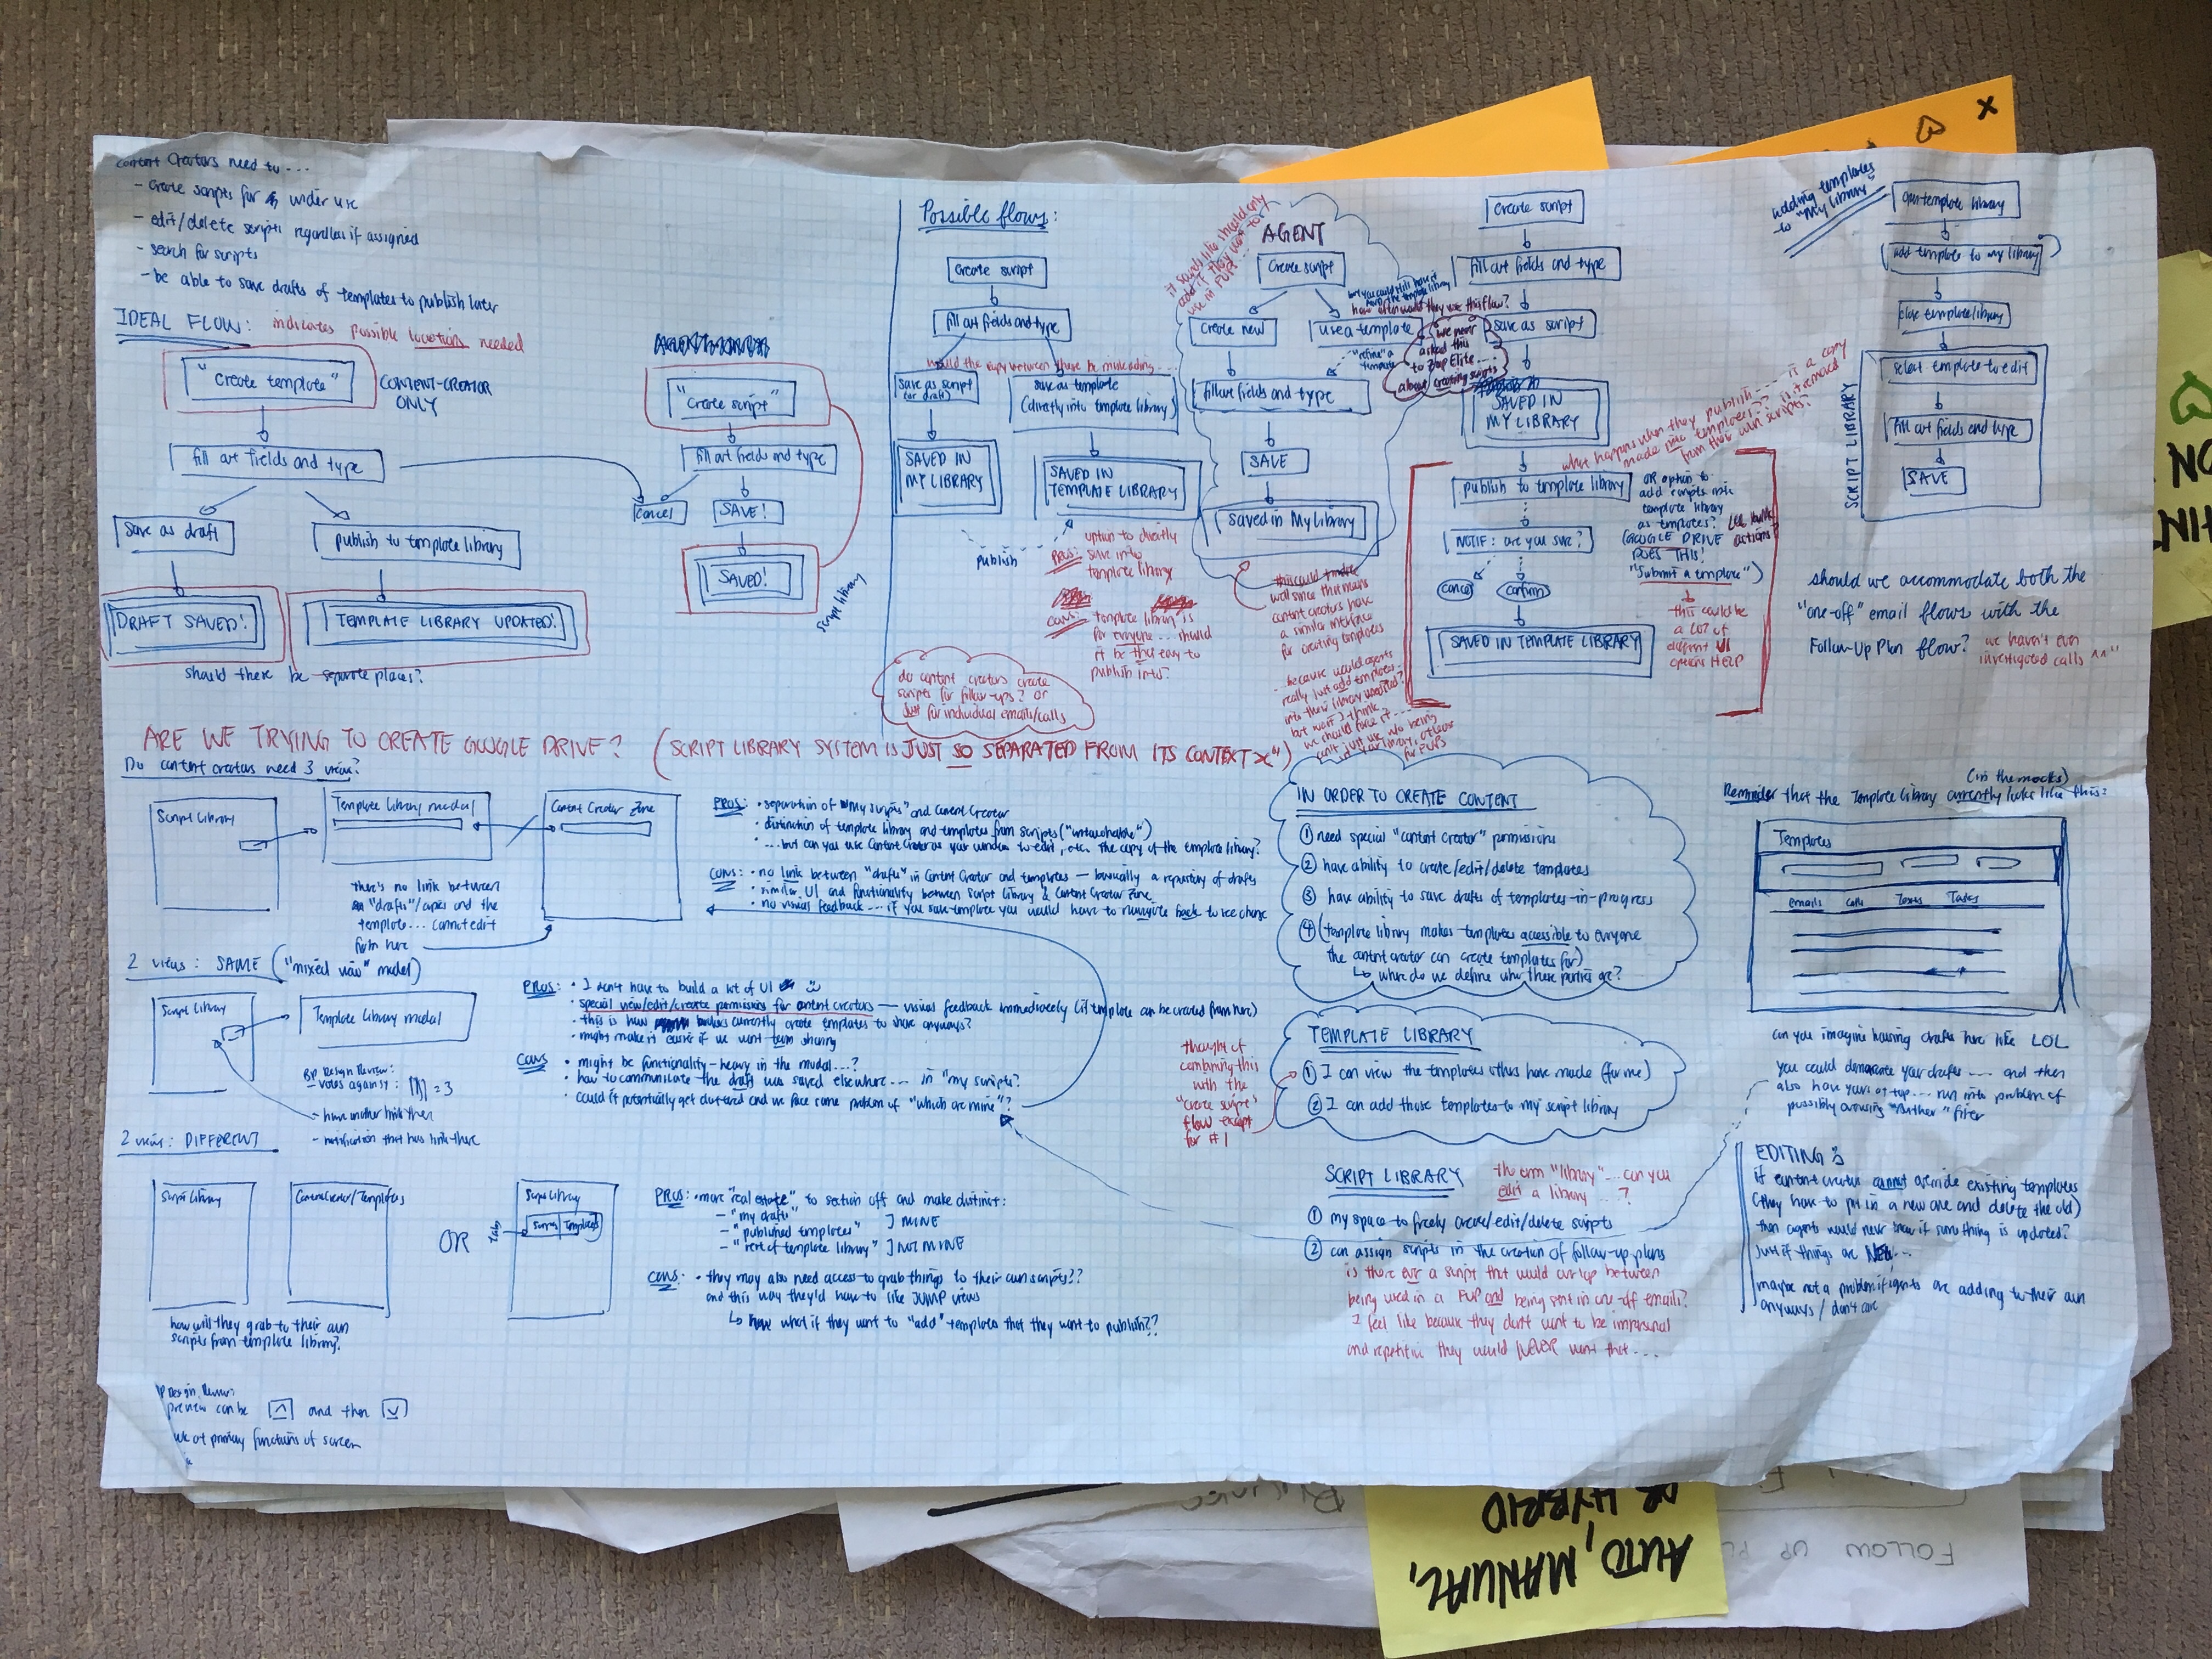 Content Creators need to...
- create scripts for under use
- edit/delete scripts regardless if assigned
- search for scripts
- be able to save drafts of templates to publish later
IDEAL FLOW: indicates possible locations needed
"Create template"
CONTENT-CREATOR
ONLY
fill out fields and type
Save as draft
publish to template library
DRAFT SAVED!
TEMPLATE LIBRARY UPDATED!
should there be separate places?
"Create script"
fill out fields and type
cancel
SAVE!
SAVED!
script library
Possible flows:
Create script
fill out fields and type
would the copy between these be misleading...
save as script
(or draft)
save as template
(directly into template library)
SAVED IN
MY LIBRARY
SAVED IN
TEMPLATE LIBRARY
publish
PROS: option to directly
save into
template library
CONS: template library is
for anyone... should
it be that easy to
publish into?
do content creators create
scripts for follow-ups? or
just for individual emails/calls
it sounds like should only
add if they want to
use in FUPs...
AGENT
Create script
Create new
use a template
"refine" a
template
fill out fields and type
SAVE
Saved in My Library
but you could still have it
from the template library
how often would they use this flow?
we never
asked this
to Zap Elite...
about creating scripts
well since that means
content creators have
a similar interface
for creating templates
...because would agents
really just add templates
into their library unedited?
but wait I think
we should force it...
Create script
fill out fields and type
save as script
SAVED IN
MY LIBRARY
what happens when they publish..... is a copy
made into templates?? is it removed
from their own scripts?
publish to template library
NOTIF: are you sure?
cancel
confirm
SAVED IN TEMPLATE LIBRARY
OR option to
add scripts into
template library
as templates?
(GOOGLE DRIVE
DOES THIS!
"Submit a template")
this could be
a LOT of
different UI
options HELP
adding templates
to "My library"
open template library
add template to my library
close template library
SCRIPT LIBRARY
select template to edit
fill out fields and type
SAVE
should we accommodate both the
"one-off" email flows with the
Follow-Up Plan flow? we haven't even
investigated calls ^^"
ARE WE TRYING TO CREATE GOOGLE DRIVE? (SCRIPT LIBRARY SYSTEM IS JUST SO SEPARATED FROM ITS CONTEXT
Do content creators need 3 views?
Script Library
Template Library modal
Content Creator Zone
there's no link between
"drafts"/copies and the
template... cannot edit
from here
PROS: • separation of "My scripts" and Content Creator
• distinction of template library and templates from scripts ("untouchable")
• ...but can you use Content Creator as your window to edit, etc. the copy of the template library?
CONS: • no link between "drafts" in Content Creator and templates — basically a repository of drafts
• similar UI and functionality between Script Library & Content Creator Zone
• no visual feedback.... if you save template you would have to navigate back to see change
2 views: SAME ("mixed view" model)
Script Library
Template Library modal
BP Design Review:
- votes against: = 3
- have another link then
- notification that has link there
PROS: • I don't have to build a lot of UI
• special view/edit/create permissions for content creators — visual feedback immediately (if template can be created from here)
• this is how currently create templates to share anyways?
• might make it easier if we want team sharing
CONS • might be functionality-heavy in the modal...?
• how to communicate the draft was saved elsewhere... in "my scripts"?
• could it potentially get cluttered and we face same problem of "which are mine"?
2 views: DIFFERENT
Script Library
Content Creator/Templates
how will they grab to their own
scripts from template library?
OR
Tabs
Script Library
Scripts Templates
PROS: • more "real estate" to section off and make distinct:
- "my drafts"
- "published templates" ] MINE
- "rest of template library" ] NOT MINE
CONS: • they may also need access to grab things to their own scripts??
and this way they'd have to like JUMP views
↳ what if they want to "add" templates that they want to publish??
Design Review:
preview can be and then
at primary functions of screen
IN ORDER TO CREATE CONTENT
① need special "content creator" permissions
② have ability to create/edit/delete templates
③ have ability to save drafts of templates-in-progress
④ (template library makes templates accessible to everyone
the content creator can create templates for)
↳ where do we define who these parties are?
TEMPLATE LIBRARY
① I can view the templates others have made (for me)
② I can add those templates to my script library
thought of
combining this
with the
"create script"
flow except
for #1
SCRIPT LIBRARY
the term "library"... can you
edit a library...?
① my space to freely create/edit/delete scripts
② can assign scripts in the creation of follow-up plans
is there ever a script that would overlap between
being used in a FUP and being sent in one-off emails?
I feel like because they don't want to be impersonal
and repetitive they would NEVER want that...
(in the mocks)
Reminder that the Template Library currently looks like this:
Templates
emails calls Texts Tasks
can you imagine housing drafts here like LOL
you could demarcate your drafts..... and then
also have yours at top... run into problem of
possibly overusing "author" filter
EDITING
if content creator cannot override existing templates
(they have to put in a new one and delete the old)
then agents would never know if something is updated?
just if things are NEW...
maybe not a problem if agents are adding to their own
anyways / don't care
AUTO, MANUAL,
OR HYBRID
FOLLOW UP
NO